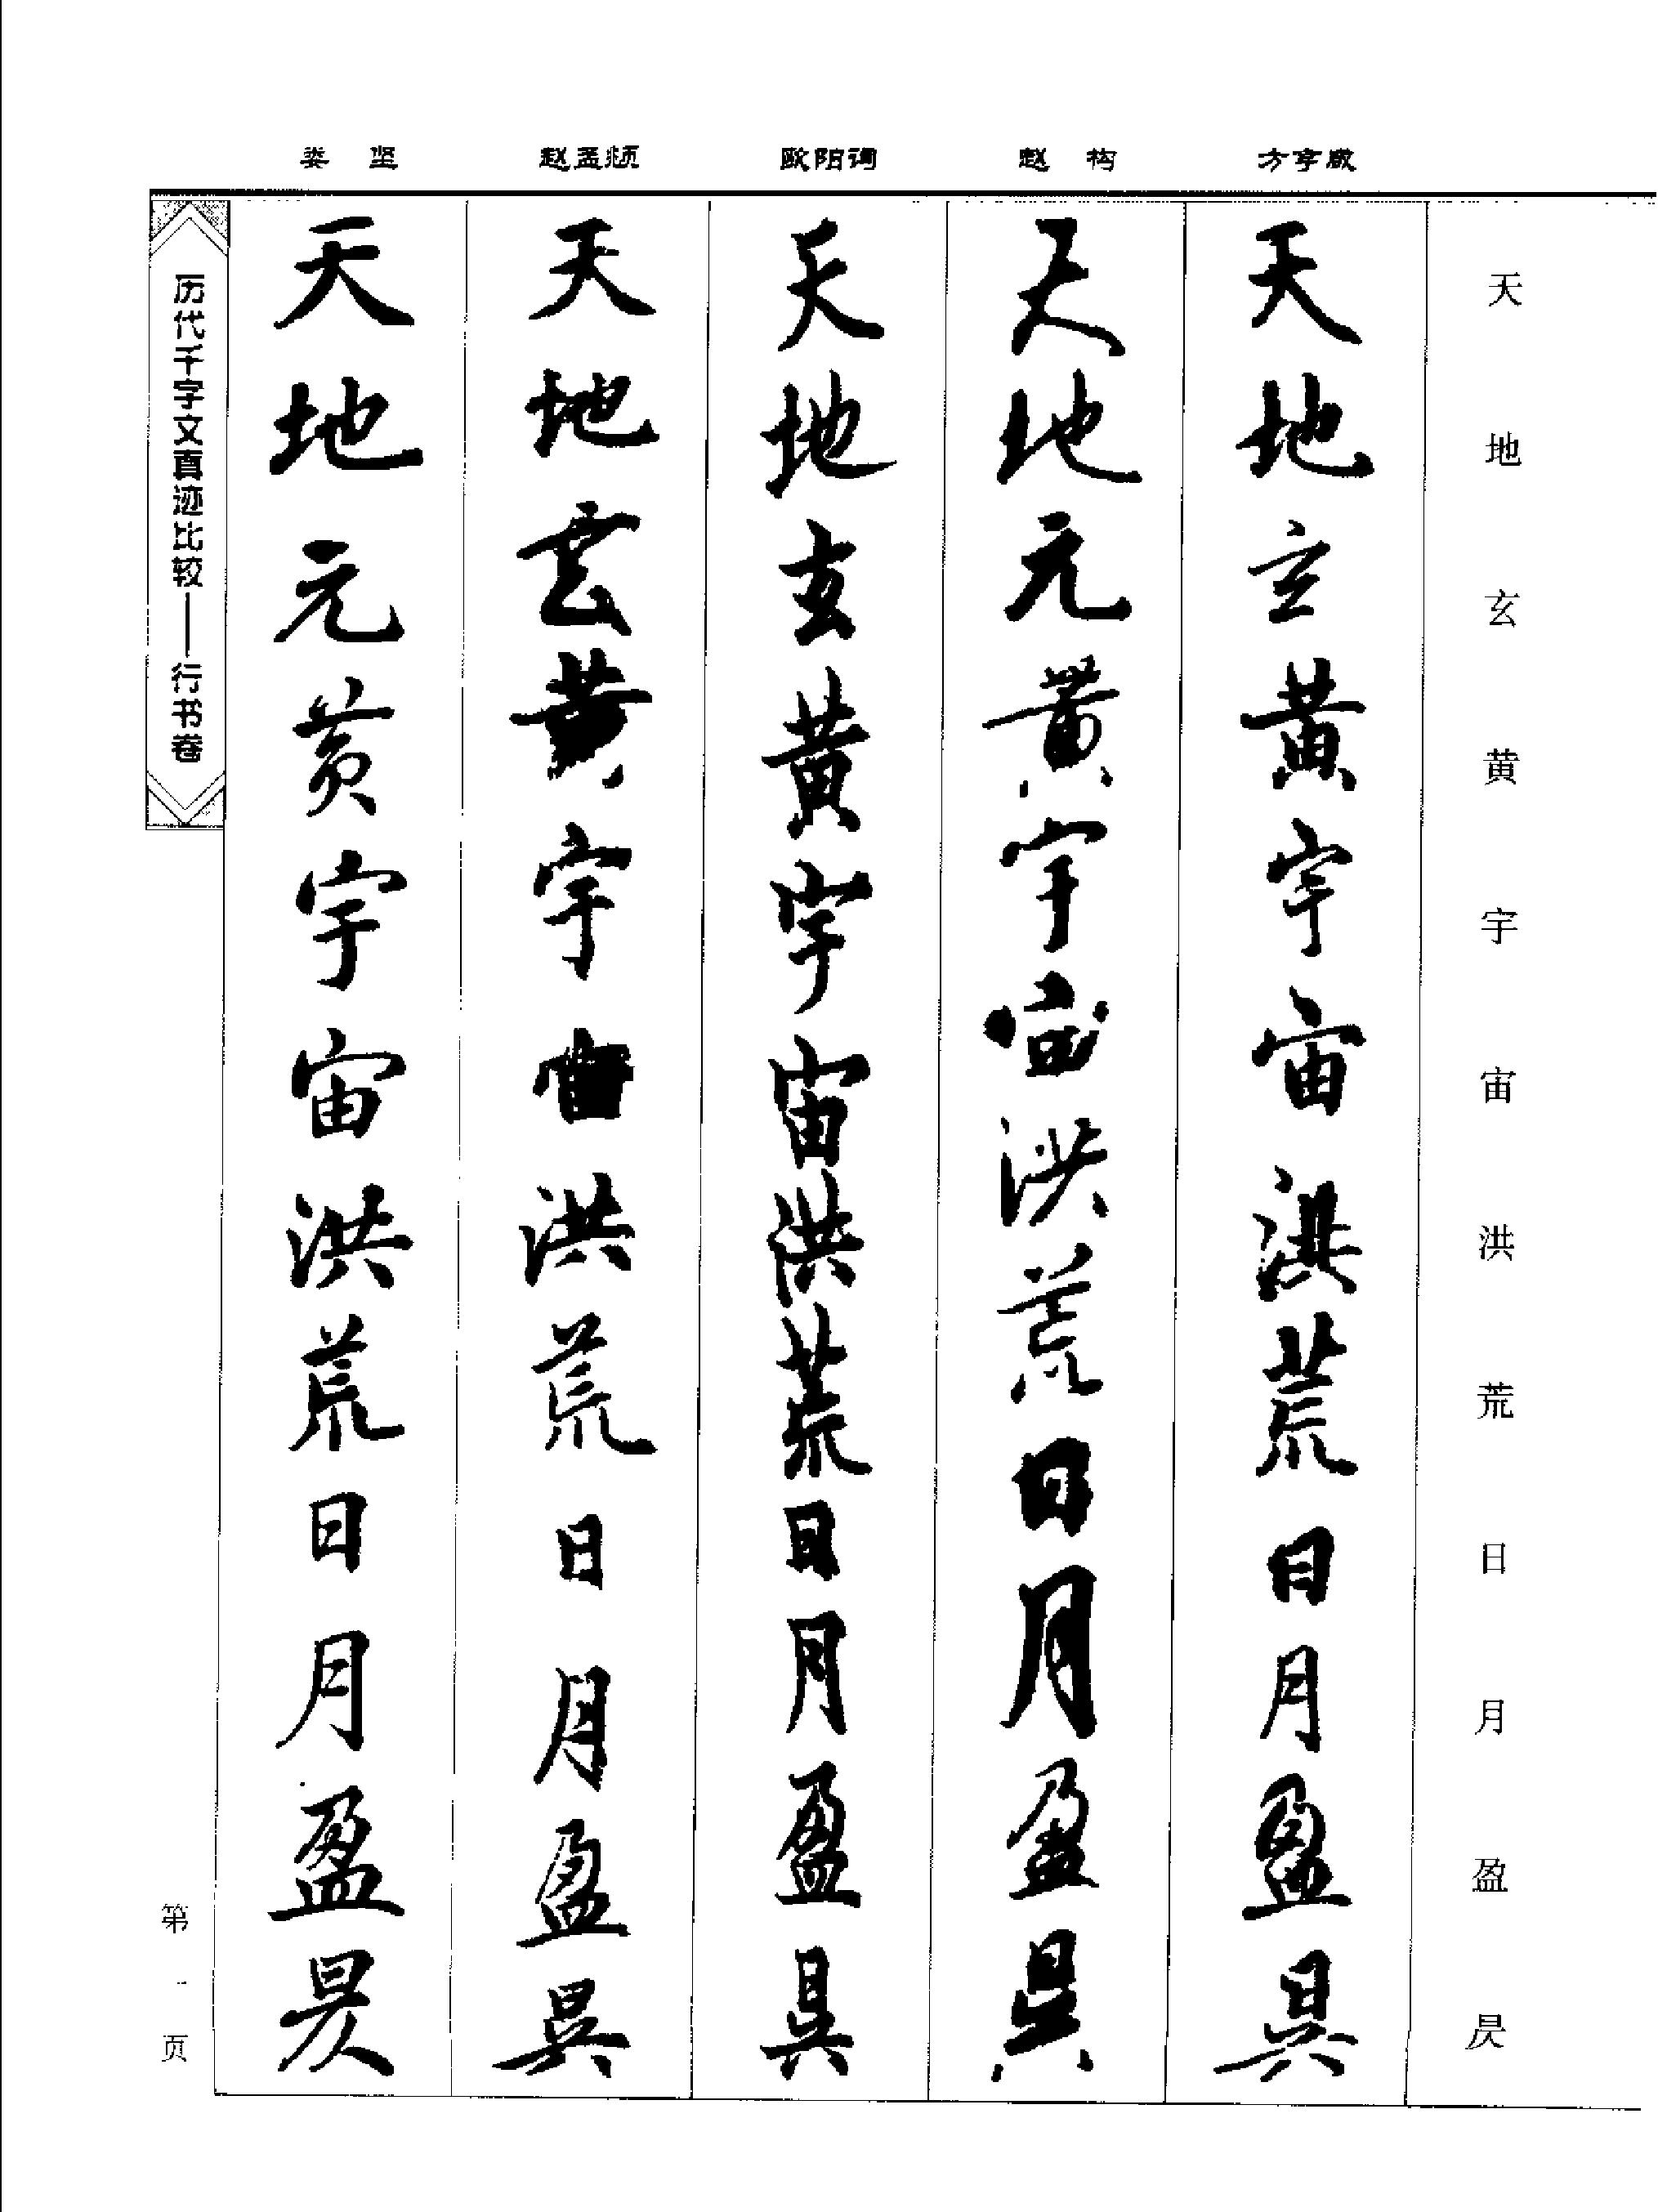 娄 坚
赵孟頫
欧阳询
赵 构
方亨咸
天地玄黄宇宙洪荒日月盈昃
天地玄黄宇宙洪荒日月盈昃
天地元黄宇宙洪荒日月盈昃
天地玄黄宇宙洪荒日月盈昃
天地玄黄宇宙洪荒日月盈昃
天地元黄宇宙洪荒日月盈昃
历代千字文真迹比较——行书卷
第一页